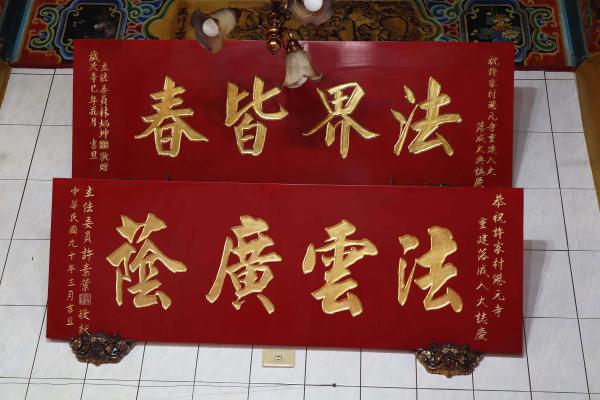 祝許家村港元寺重建入火
落成大典誌慶
法界皆春
立法委員林炳坤敬贈
歲次辛巳年花月吉旦
恭祝許家村港元寺
重建落成入火誌慶
法雲廣蔭
立法委員許素葉敬獻
中華民國九十年三月吉旦